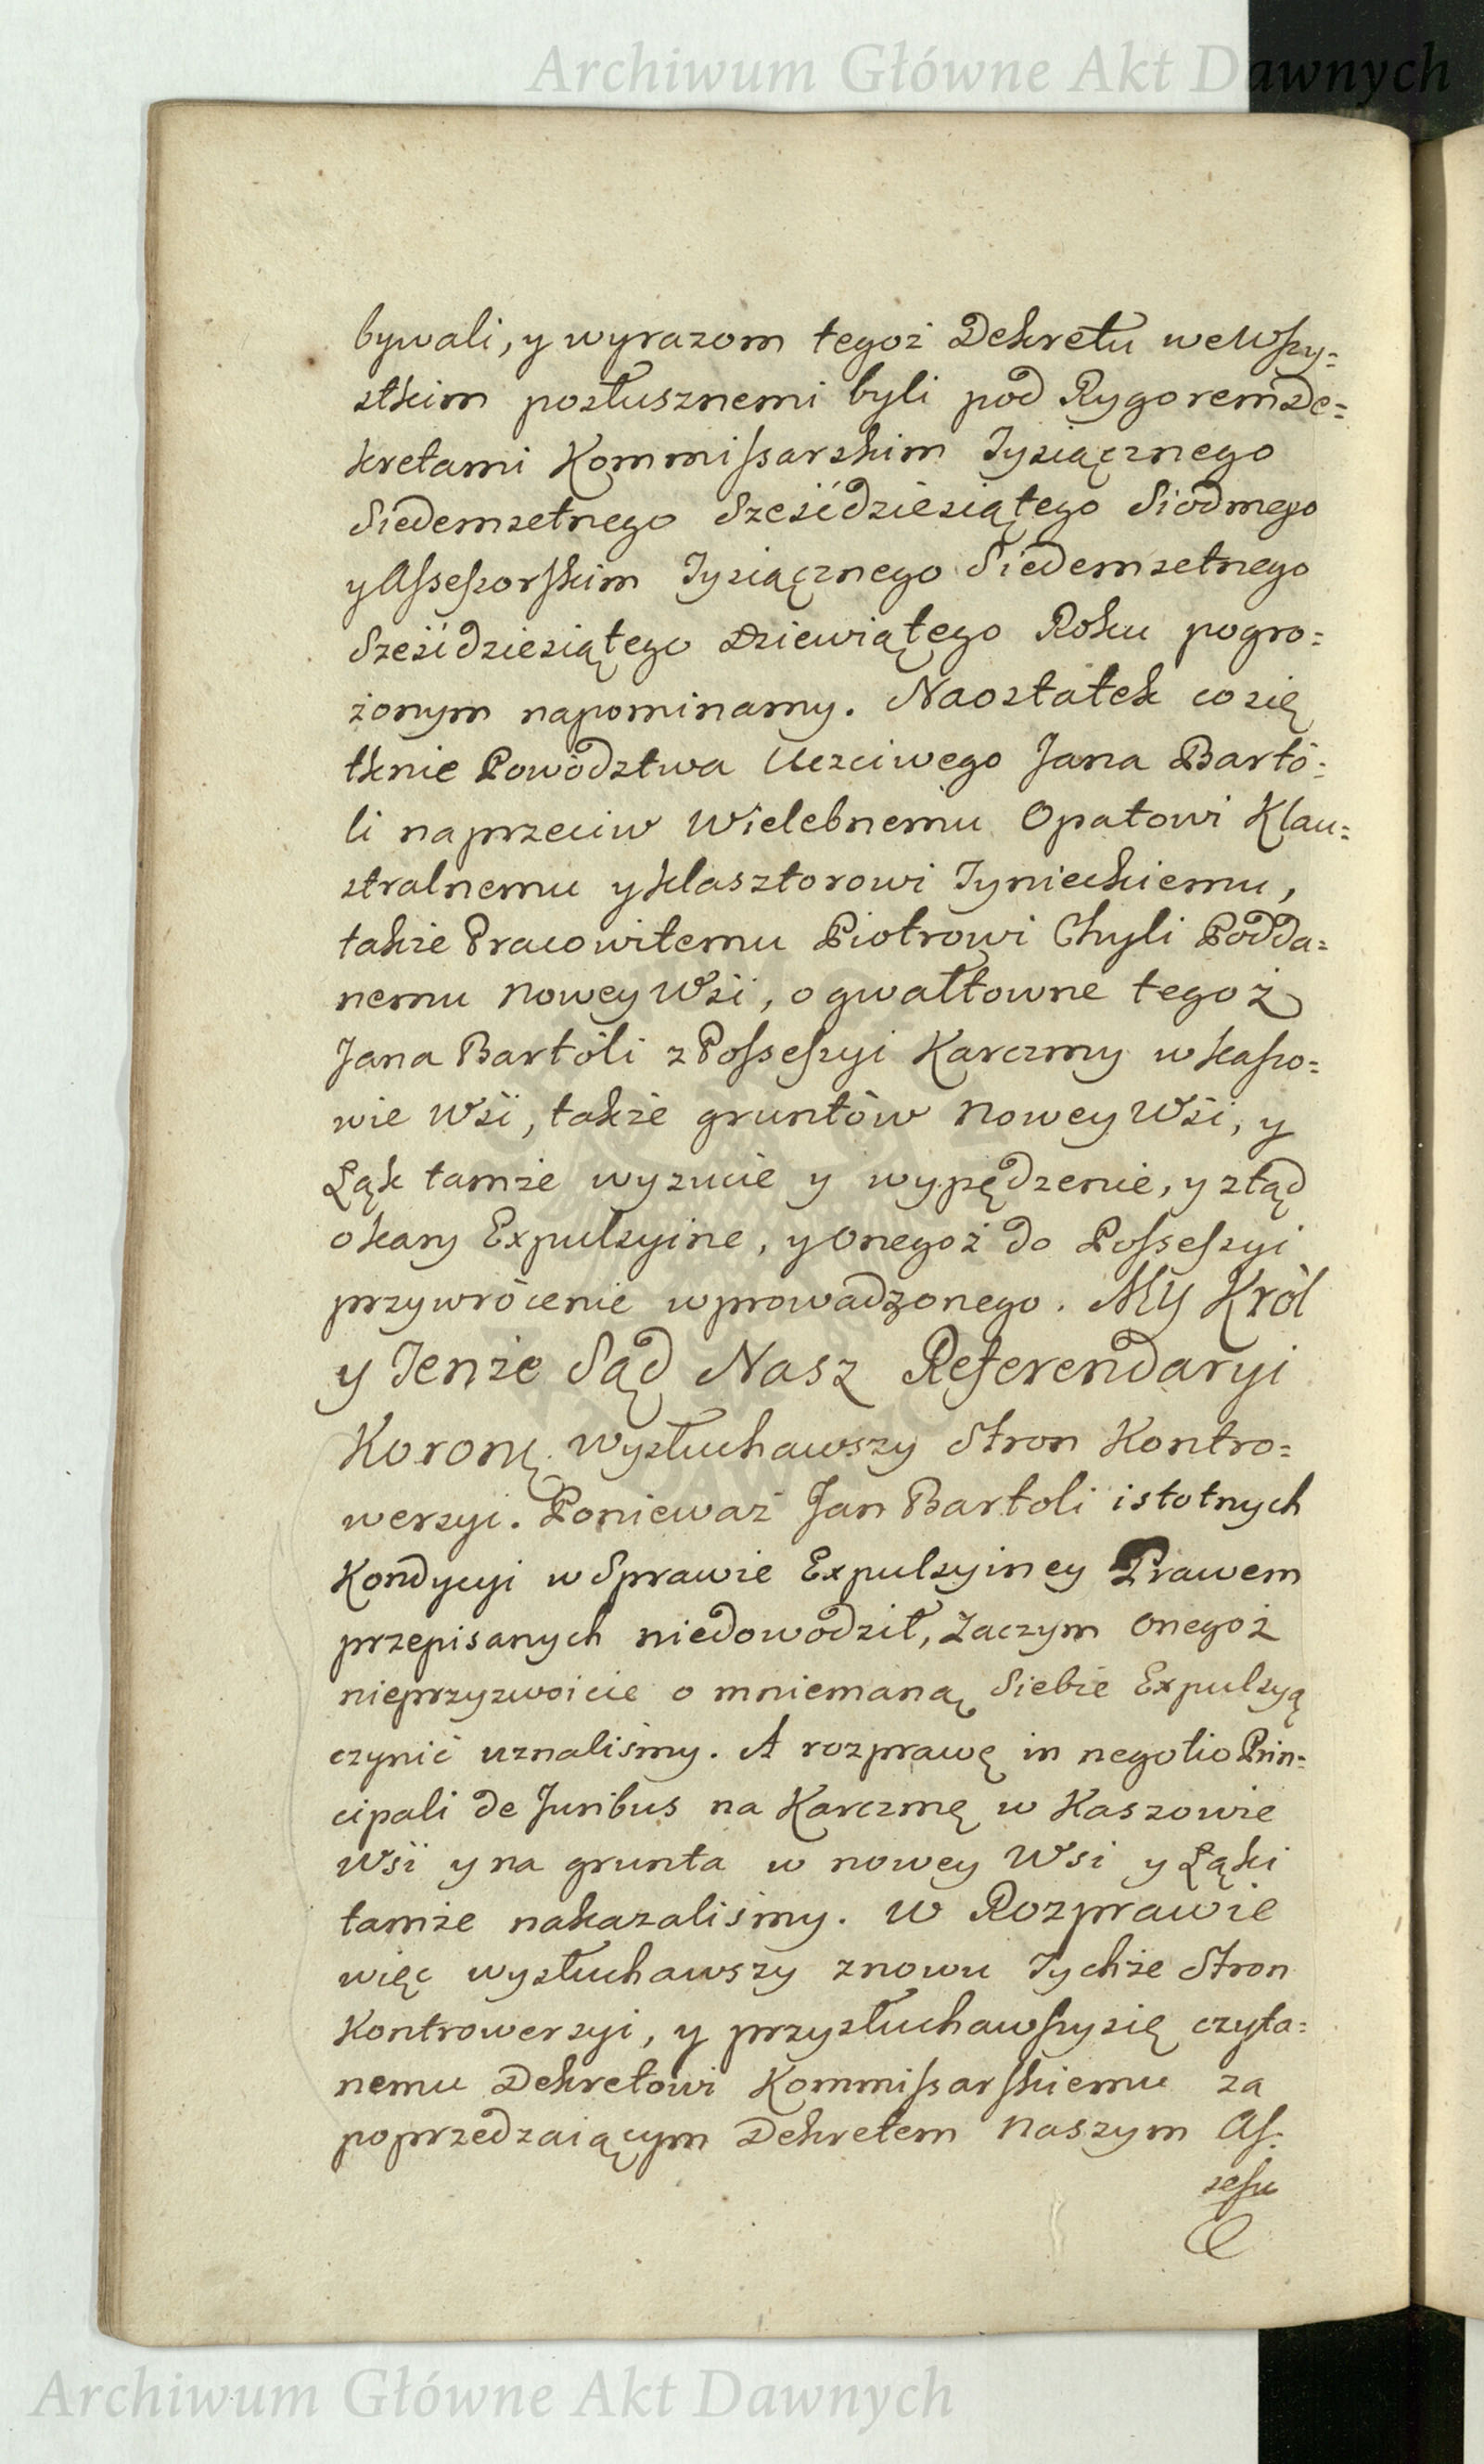 Archiwum Główne Akt Dawnych
bywali, y wyrazom tegoż Dekretu weWszy=
stkim posłusznemi byli pod Rygorem De=
kretami Kommissarskim Tysiącznego
Siedemsetnego Sześćdziesiątego Siodmego
y Assessorskim Tysiącznego Siedemsetnego
Sześćdziesiątego Dziewiątego Roku pogro=
żonym napominamy. Naostatek co się
tknie Powództwa Uczciwego Jana Bartó=
li naprzeciw Wielebnemu Opatowi Klau=
stralnemu y klasztorowi Tynieckiemu,
także Pracowitemu Piotrowi Chyli Podda=
nemu nowey Wsi, o gwałtowne tegoż
Jana Bartóli z Possessyi Karczmy w kaszo=
wie Wsi, także gruntów nowey Wsi, y
Łąk tamże wyzucie y wypędzenie, y ztąd
o kary Expulsyine, y onegoż do Possessyi
przywrócenie wprowadzonego. MY Król
y Tenże Sąd Nasz Referendaryi
Koronę. wysłuchawszy Stron Kontro=
wersyi. Ponieważ Jan Bartoli istotnych
Kondycyi w Sprawie Expulsyiney Prawem
przepisanych niedowodził, Zaczym onegoż
nieprzyzwoicie o mniemaną Siebie Expulsyą
czynić uznaliśmy. A rozprawę in negotio Prin=
cipali de Juribus na Karczmę w Kaszowie
Wsi y na grunta w nowey Wsi y Łąki
tamże nakazaliśmy. W Rozprawie
więc wysłuchawszy znowu Tychże Stron
Kontrowersyi, y przysłuchawszy się czyta=
nemu Dekretowi Kommissarskiemu za
poprzedzaiącym Dekretem Naszym As=
sessu
Archiwum Główne Akt Dawnych